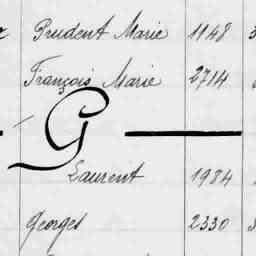 Prudent Marie 1148
François Marie 2714
G
Laurent 1984
Georges 2330